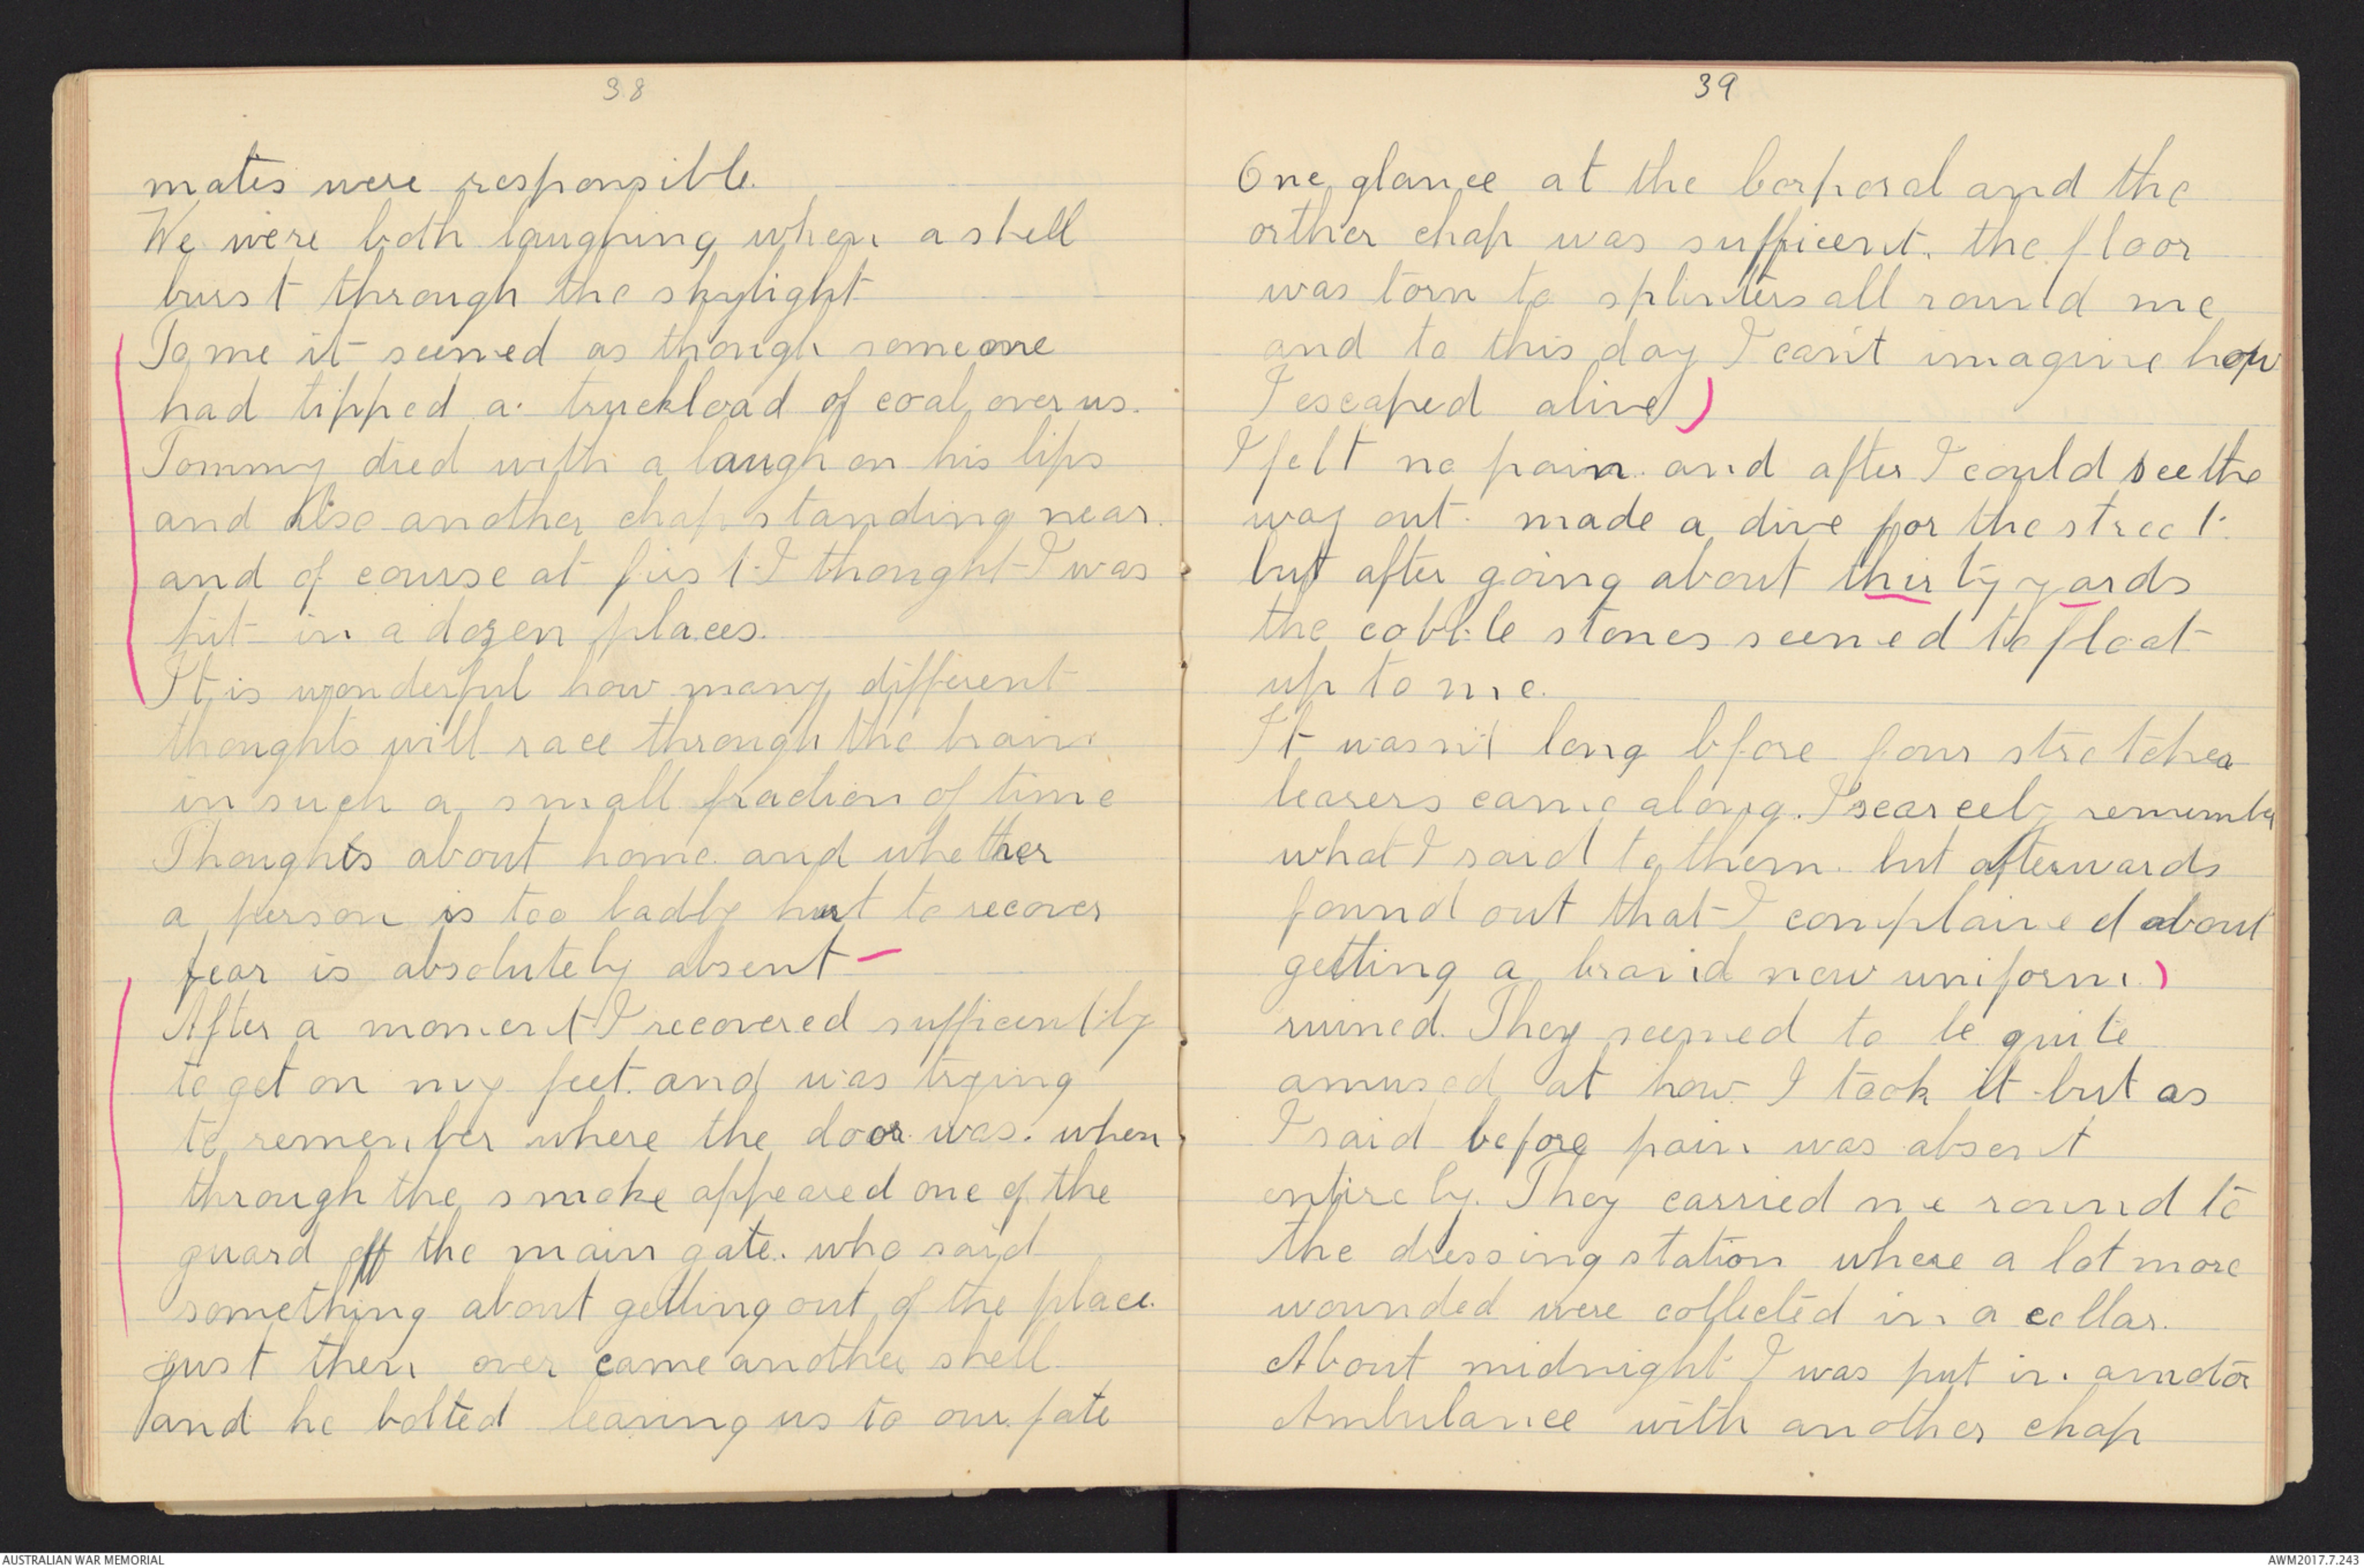 38
mates were responsible.
We were both laughing when a shell
burst through the skylight
To me it seemed as though someone
had tipped a truckload of coal over us.
Tommy died with a laugh on his lips
and also another chap standing near.
and of course at first I thought I was
hit in a dozen places.
It is wonderful how many different
thoughts will race through the brain
in such a small fraction of time
Thoughts about home and whether
a person is too badly hurt to recover
fear is absolutely absent
After a moment I recovered sufficently
to get on my feet. and was trying
to remember where the door was. when
through the smoke appeared one of the
guard off the main gate. who said
something about getting out of the place.
just then over came another shell
and he bolted leaving us to our fate
39
One glance at the Corporal and the
orther chap was sufficent. the floor
was torn to splinters all round me
and to this day I can't imagine how
I escaped alive)
I felt no pain and after I could see the
way out. made a dive for the street.
but after going about thirty yards
the cobble stones seemed to float
up to me.
It wasn't long bfore four stretcher
bearers came along. I scarcely remember
what I said to them. but afterwards
found out that I complained about
getting a brand new uniform)
ruined. They seemed to be quite
amused at how I took it but as
I said before pain was absent
entirely. They carried me round to
the dressing station where a lot more
wounded were collected in a cellar.
About midnight I was put in a motor
Ambulance with another chap
AUSTRALIAN WAR MEMORIAL
AWM2017.7.243